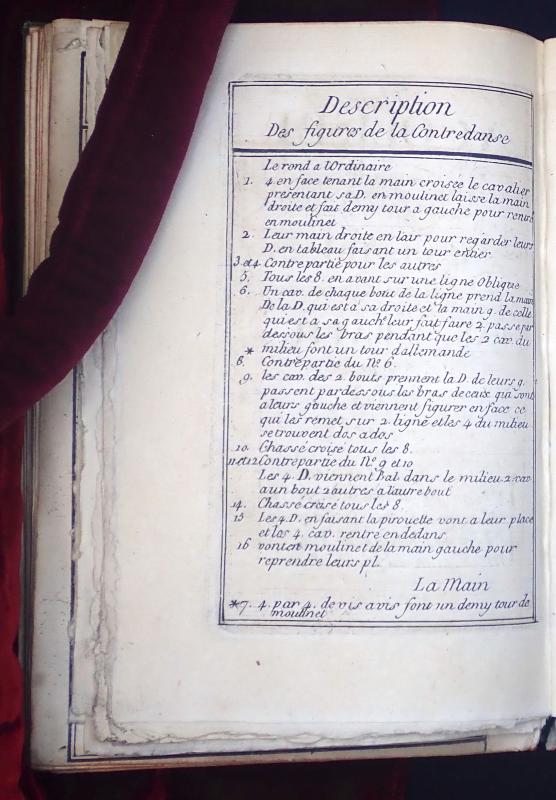 Description
Des figures de la Contredanse
Le rond a lOrdinaire
1. 4 en face tenant la main croisée le cavalier
présentant sa D. en moulinet laisse la main
droite et fait demy tour a gauche pour rentre
en moulinet
2. Leur main droite en lair pour regarder leurs
D. en tableau faisant un tour entier
3. et 4. Contre partie pour les autres
5. Tous les 8. en avant sur une ligne Oblique
6. Un cav. de chaque bout de la ligne prend la main
De la D. qui est a sa droite et la main g. de celle
qui est a sa gauch. leur fait faire 2. passe par
dessous les bras pendant que les 2 cav. du
* milieu font un tour d'allemande
8. Contrepartie du No. 6.
9. les cav. des 2. bouts prennent la D. de leurs g.
passent par dessous les bras de ceux qui sont
a leurs gauche et viennent figurer en face ce
qui les remet sur 2. ligne et les 4 du milieu
se trouvent dos a dos
10. Chassé croisé tous les 8.
11 et 12 Contrepartie du No. 9 et 10
Les 4. D. viennent bal. dans le milieu 2. cav.
a un bout 2 autres a l'autre bout
14. Chassé croisé tous les 8.
15 Les 4. D. en faisant la pirouette vont a leur place
et les 4. cav. rentre en dedans
16 vont en moulinet de la main gauche pour
reprendre leurs pl.
La Main
*7. 4. par 4. de vis a vis font un demy tour de
moulinet